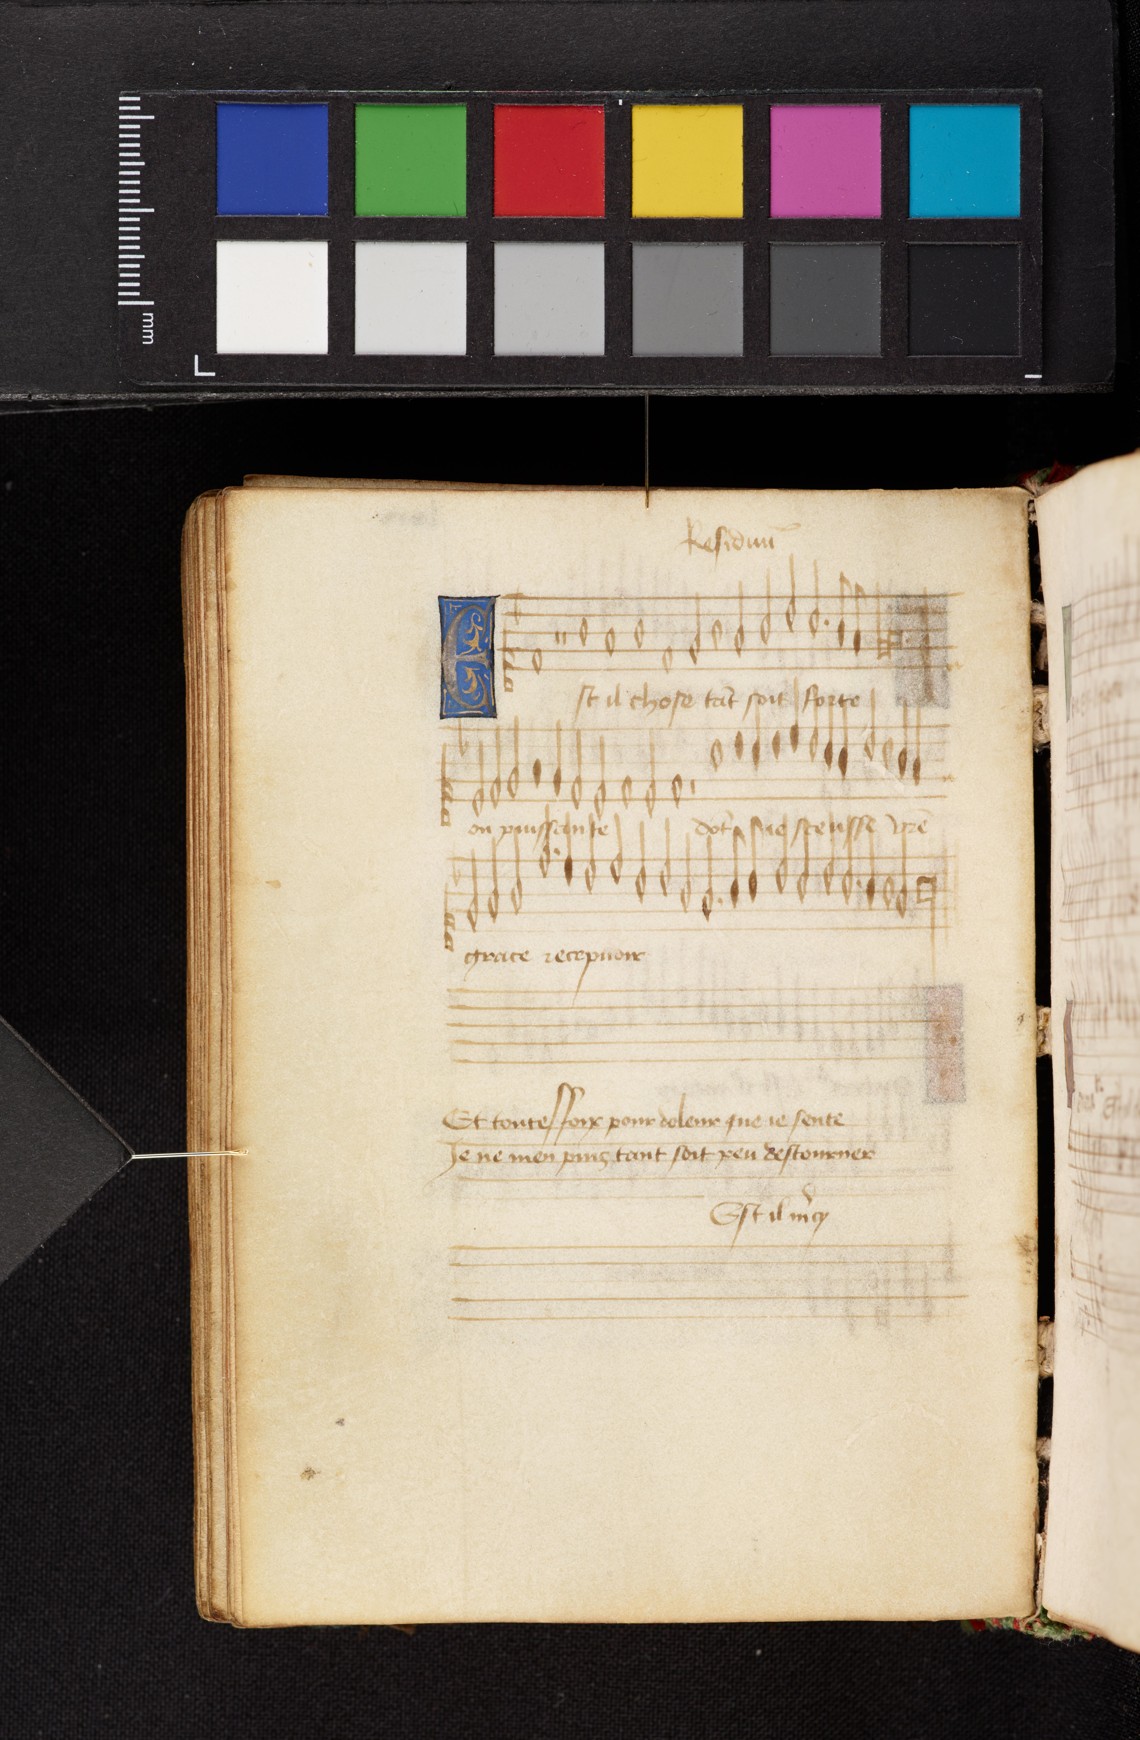 mm
Residuũ
Est il chose tãt soit forte
ou puissante dõt je sceusse vr̃e
grace recepuoir
Et touteffoix pour doleur que ie sente
Je ne men puis tant soit peu destourner
Est il m̃cy